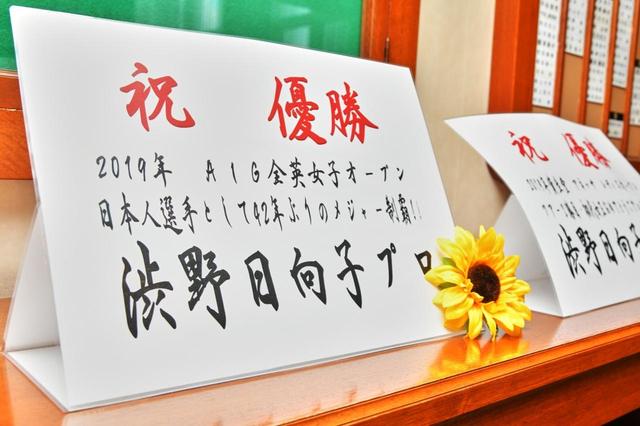 祝 優勝
2019年 AIG全英女子オープン
日本人選手として42年ぶりのメジャー制覇!!
渋野日向子プロ
祝 優勝
渋野日向子